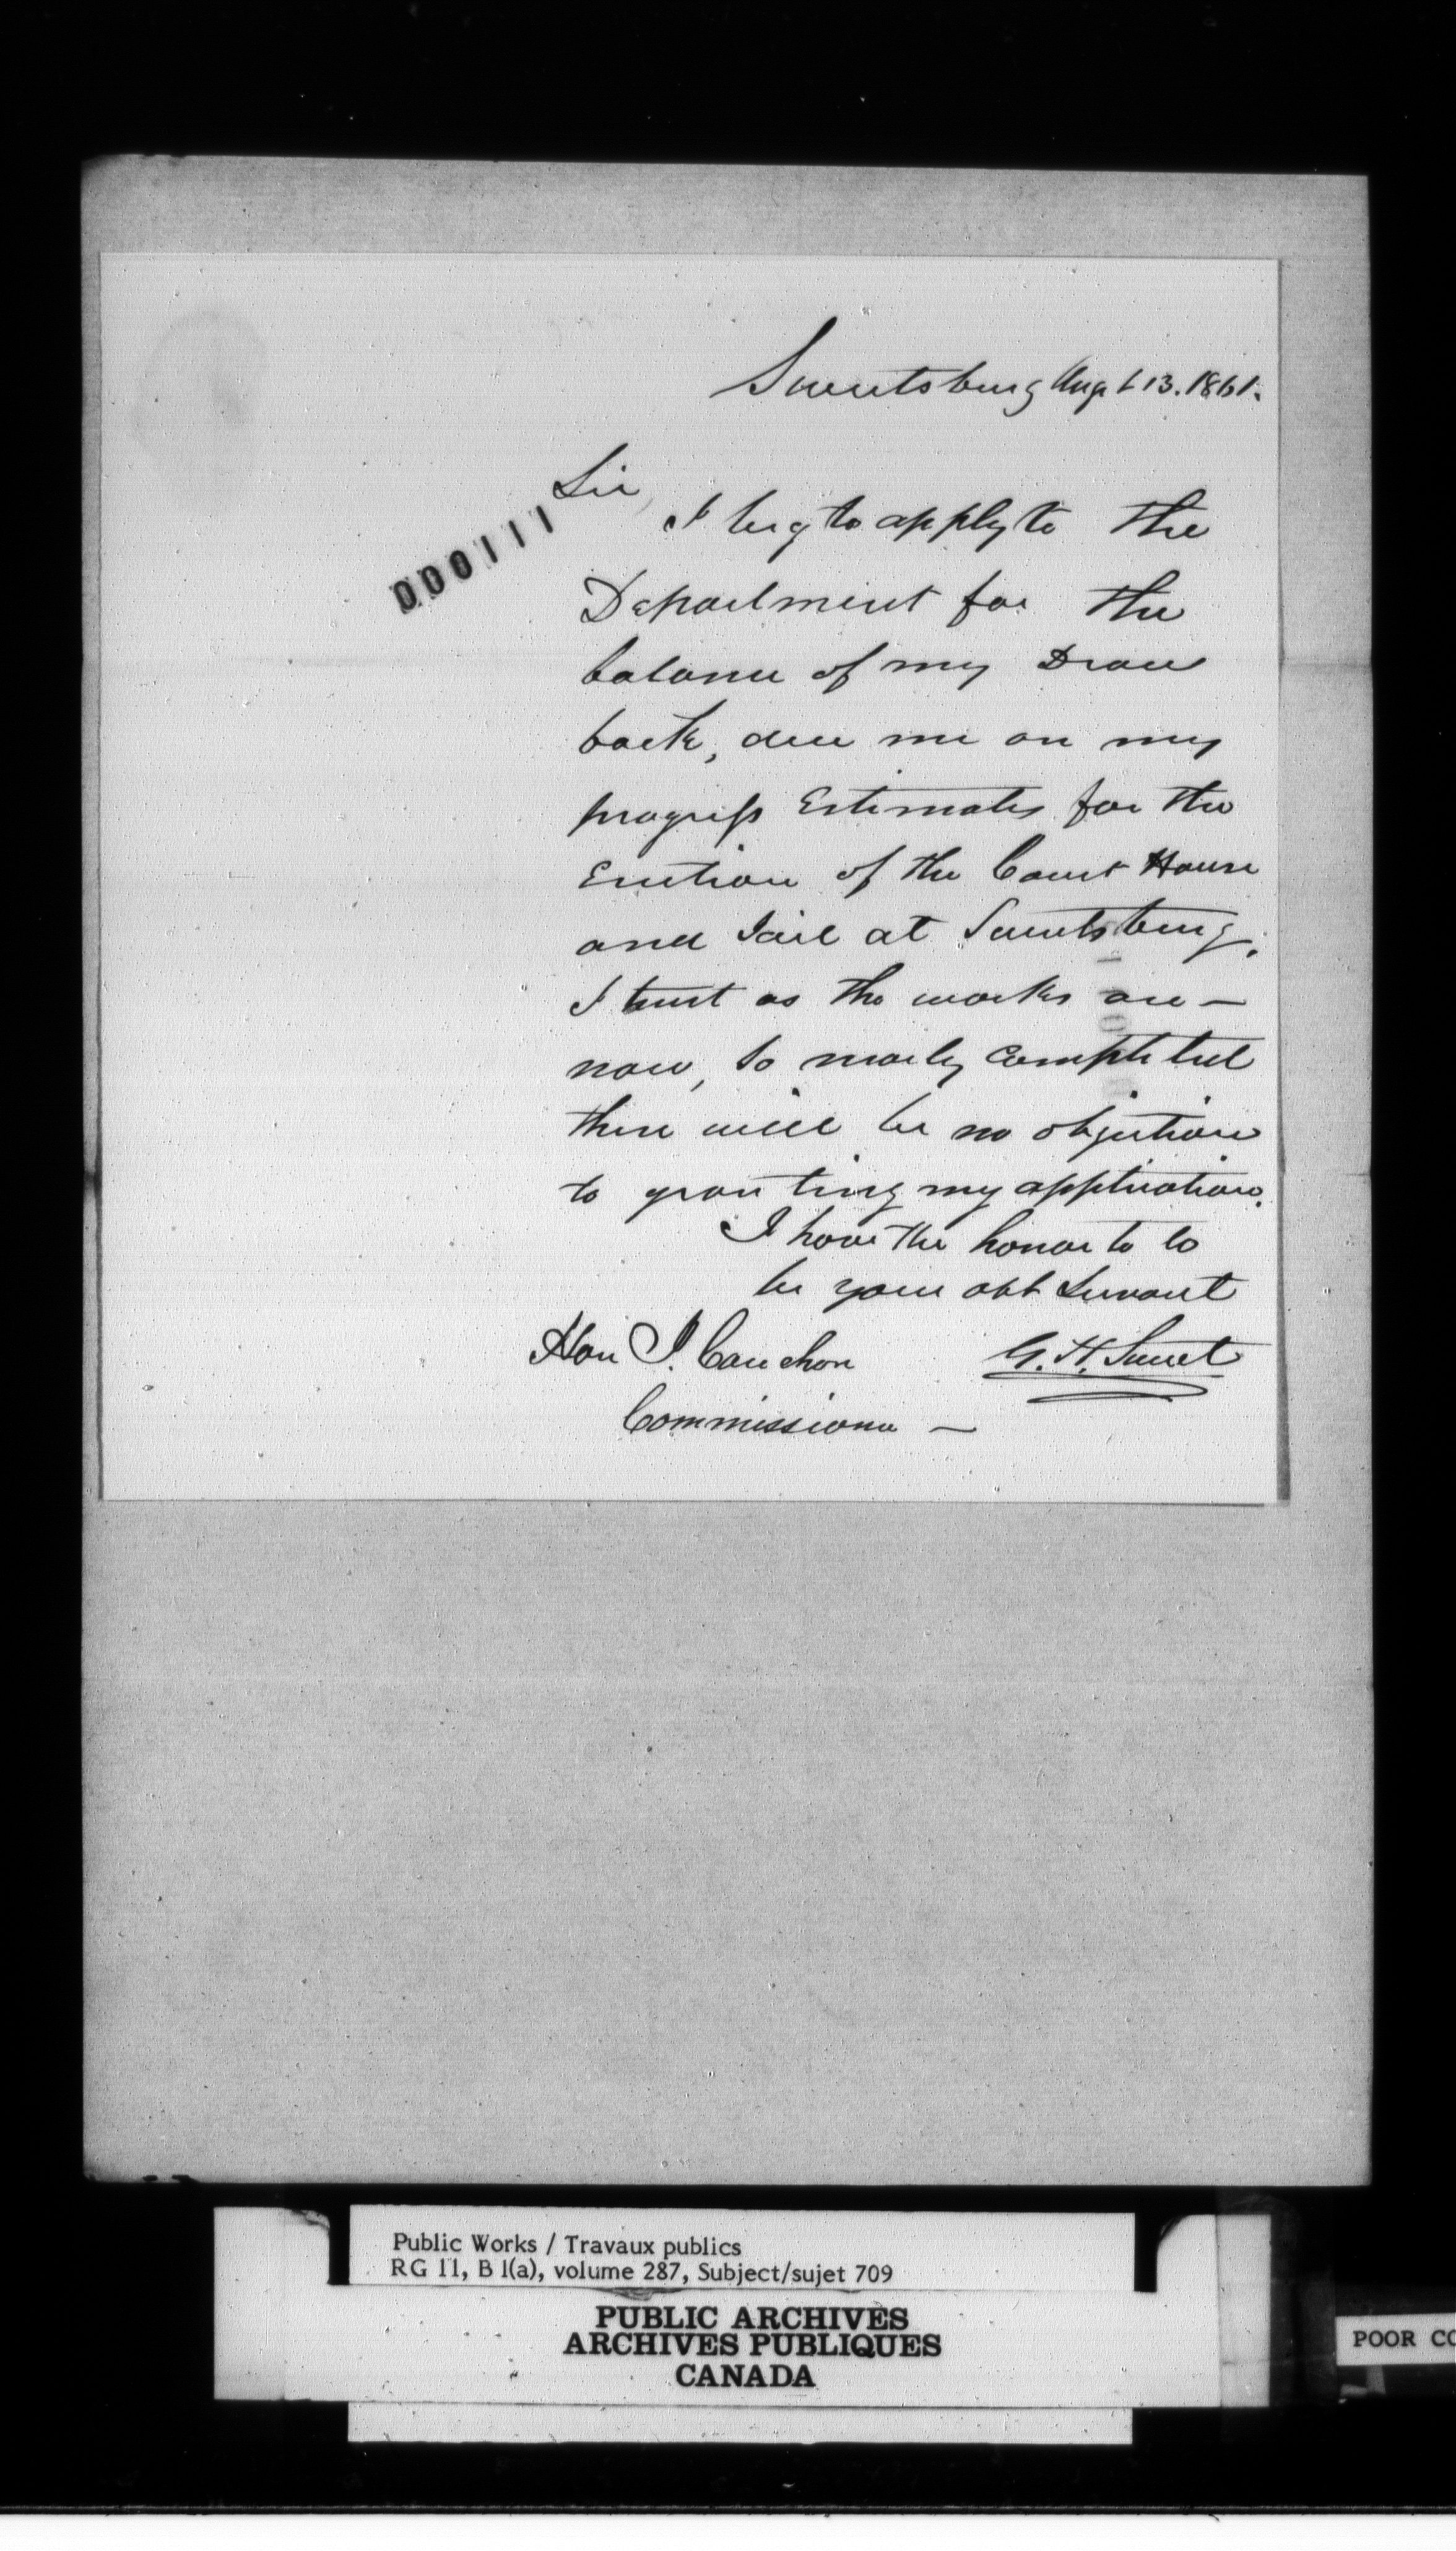 Sweetsburg Augt 13. 1861.
Sir,
000111
I beg to apply to the
Department for the
balance of my Draw
back, due me on my
progress Estimates for the
Erection of the Court House
and Jail at Sweetsburg.
I trust as the works are —
now, so nearly completed
there will be no objection
to granting my application.
I have the honor to
be your obt Servant
Hon J. Cauchon
G. H. Sweet
Commissioner —
Public Works / Travaux publics
RG 11, B 1(a), volume 287, Subject/sujet 709
PUBLIC ARCHIVES
ARCHIVES PUBLIQUES
CANADA
POOR CO